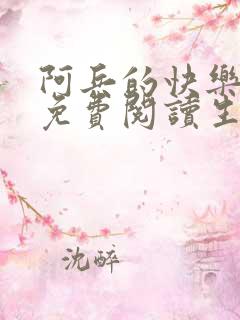 阿兵的快樂
免費閱讀生
沈醉